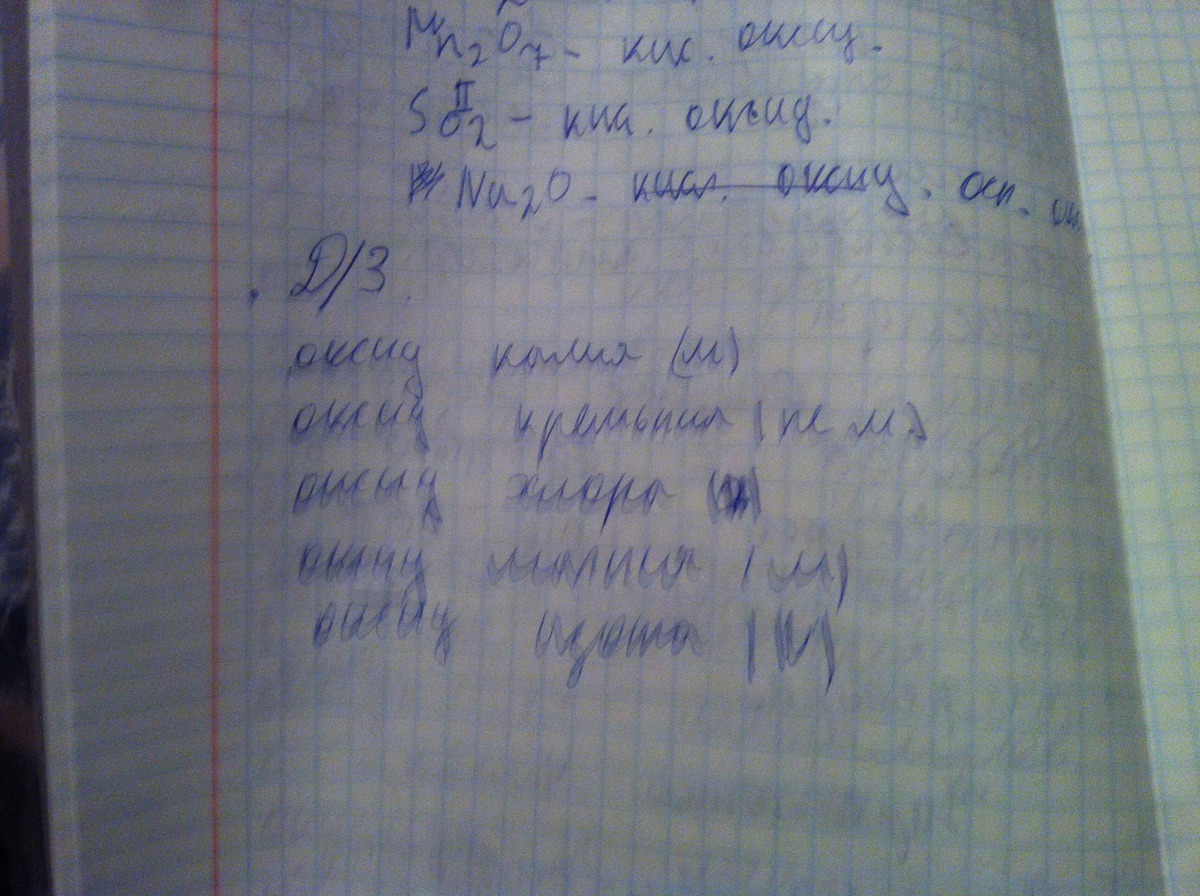 Mn₂O₇ - кис. оксид.
SO₂ II - кис. оксид.
Na₂O - кисл. оксид. осн.
Д/З
оксид калия (м)
оксид кремния (не м.)
оксид хлора
оксид магния (м)
оксид азота